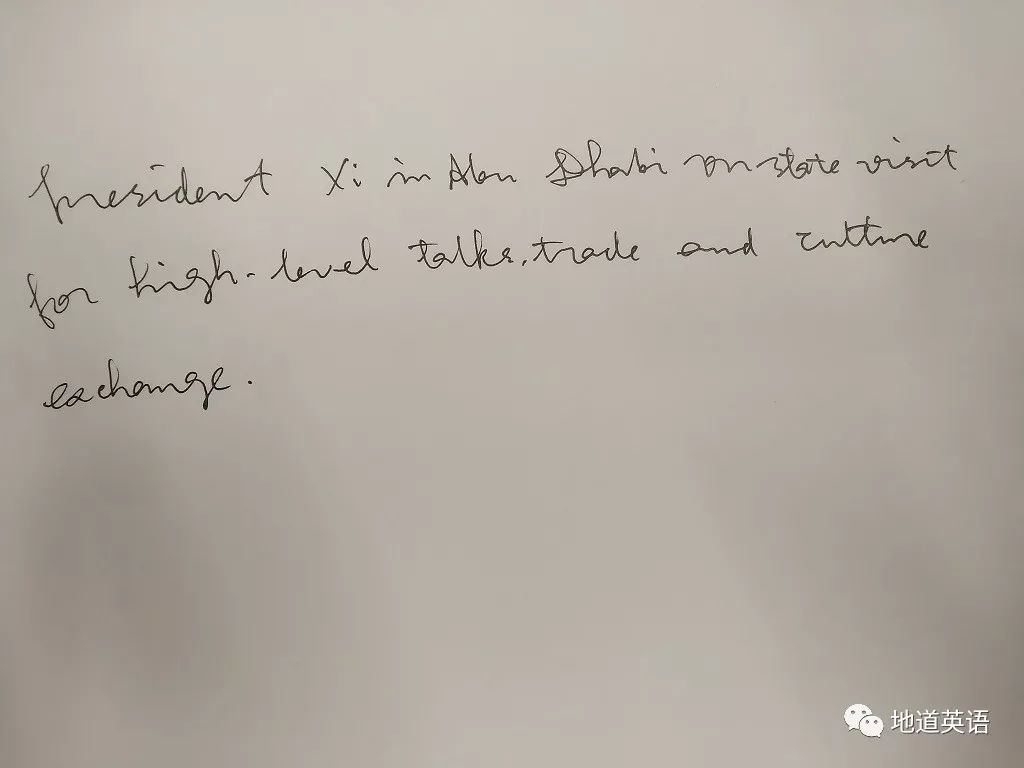 President Xi in Abu Dhabi on state visit
for high-level talks, trade and culture
exchange.
地道英语